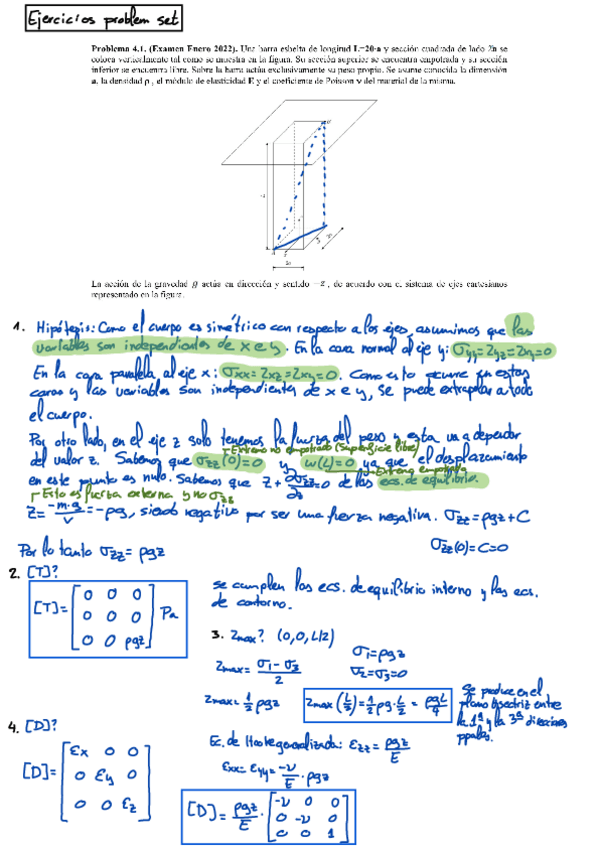 Ejercicios problem set
Problema 4.1. (Examen Enero 2022). Una barra esbelta de longitud L=20·a y sección cuadrada de lado 2a se
coloca verticalmente tal como se muestra en la figura. Su sección superior se encuentra empotrada y su sección
inferior se encuentra libre. Sobre la barra actúa exclusivamente su peso propio. Se asume conocida la dimensión
a, la densidad ρ, el módulo de elasticidad E y el coeficiente de Poisson ν del material de la misma.
2a
2a
La acción de la gravedad g actúa en dirección y sentido −z, de acuerdo con el sistema de ejes cartesianos
representado en la figura.
1. Hipótesis: Como el cuerpo es simétrico con respecto a los ejes, asumimos que las
variables son independientes de x e y. En la cara normal al eje y: σyy=τyz=τxy=0
En la cara paralela al eje x: σxx=τxz=τxy=0. Como esto ocurre en estas
caras y las variables son independientes de x e y, se puede extrapolar a todo
el cuerpo.
Por otro lado, en el eje z solo tenemos la fuerza del peso y esta va a depender
Extremo no empotrado (Superficie libre)
del valor z. Sabemos que σzz(0)=0 y w(L)=0 ya que el desplazamiento
Extremo empotrado
en este punto es nulo. Sabemos que Z+∂σzz/∂z=0 de las ecs. de equilibrio.
Esto es fuerza externa y no σzz
Z=-m·g/V=-ρg, siendo negativo por ser una fuerza negativa. σzz=ρgz+C
Por lo tanto σzz=ρgz
σzz(0)=C=0
2. [T]?
[T]= [0 0 0
0 0 0
0 0 ρgz] Pa
se cumplen las ecs. de equilibrio interno y las ecs.
de contorno.
3. τmax? (0,0,L/2)
τmax=σ1-σ3/2
σ1=ρgz
σ2=σ3=0
τmax=1/2 ρgz
τmax(L/2)=1/2 ρg·L/2=ρgL/4
Se produce en el
plano bisectriz entre
la 1ª y la 3ª direcciones
ppales.
4. [D]?
[D]= [εx 0 0
0 εy 0
0 0 εz]
Ec. de Hooke generalizada: εzz=ρgz/E
εxx=εyy=-ν/E·ρgz
[D]=ρgz/E·[-ν 0 0
0 -ν 0
0 0 1]